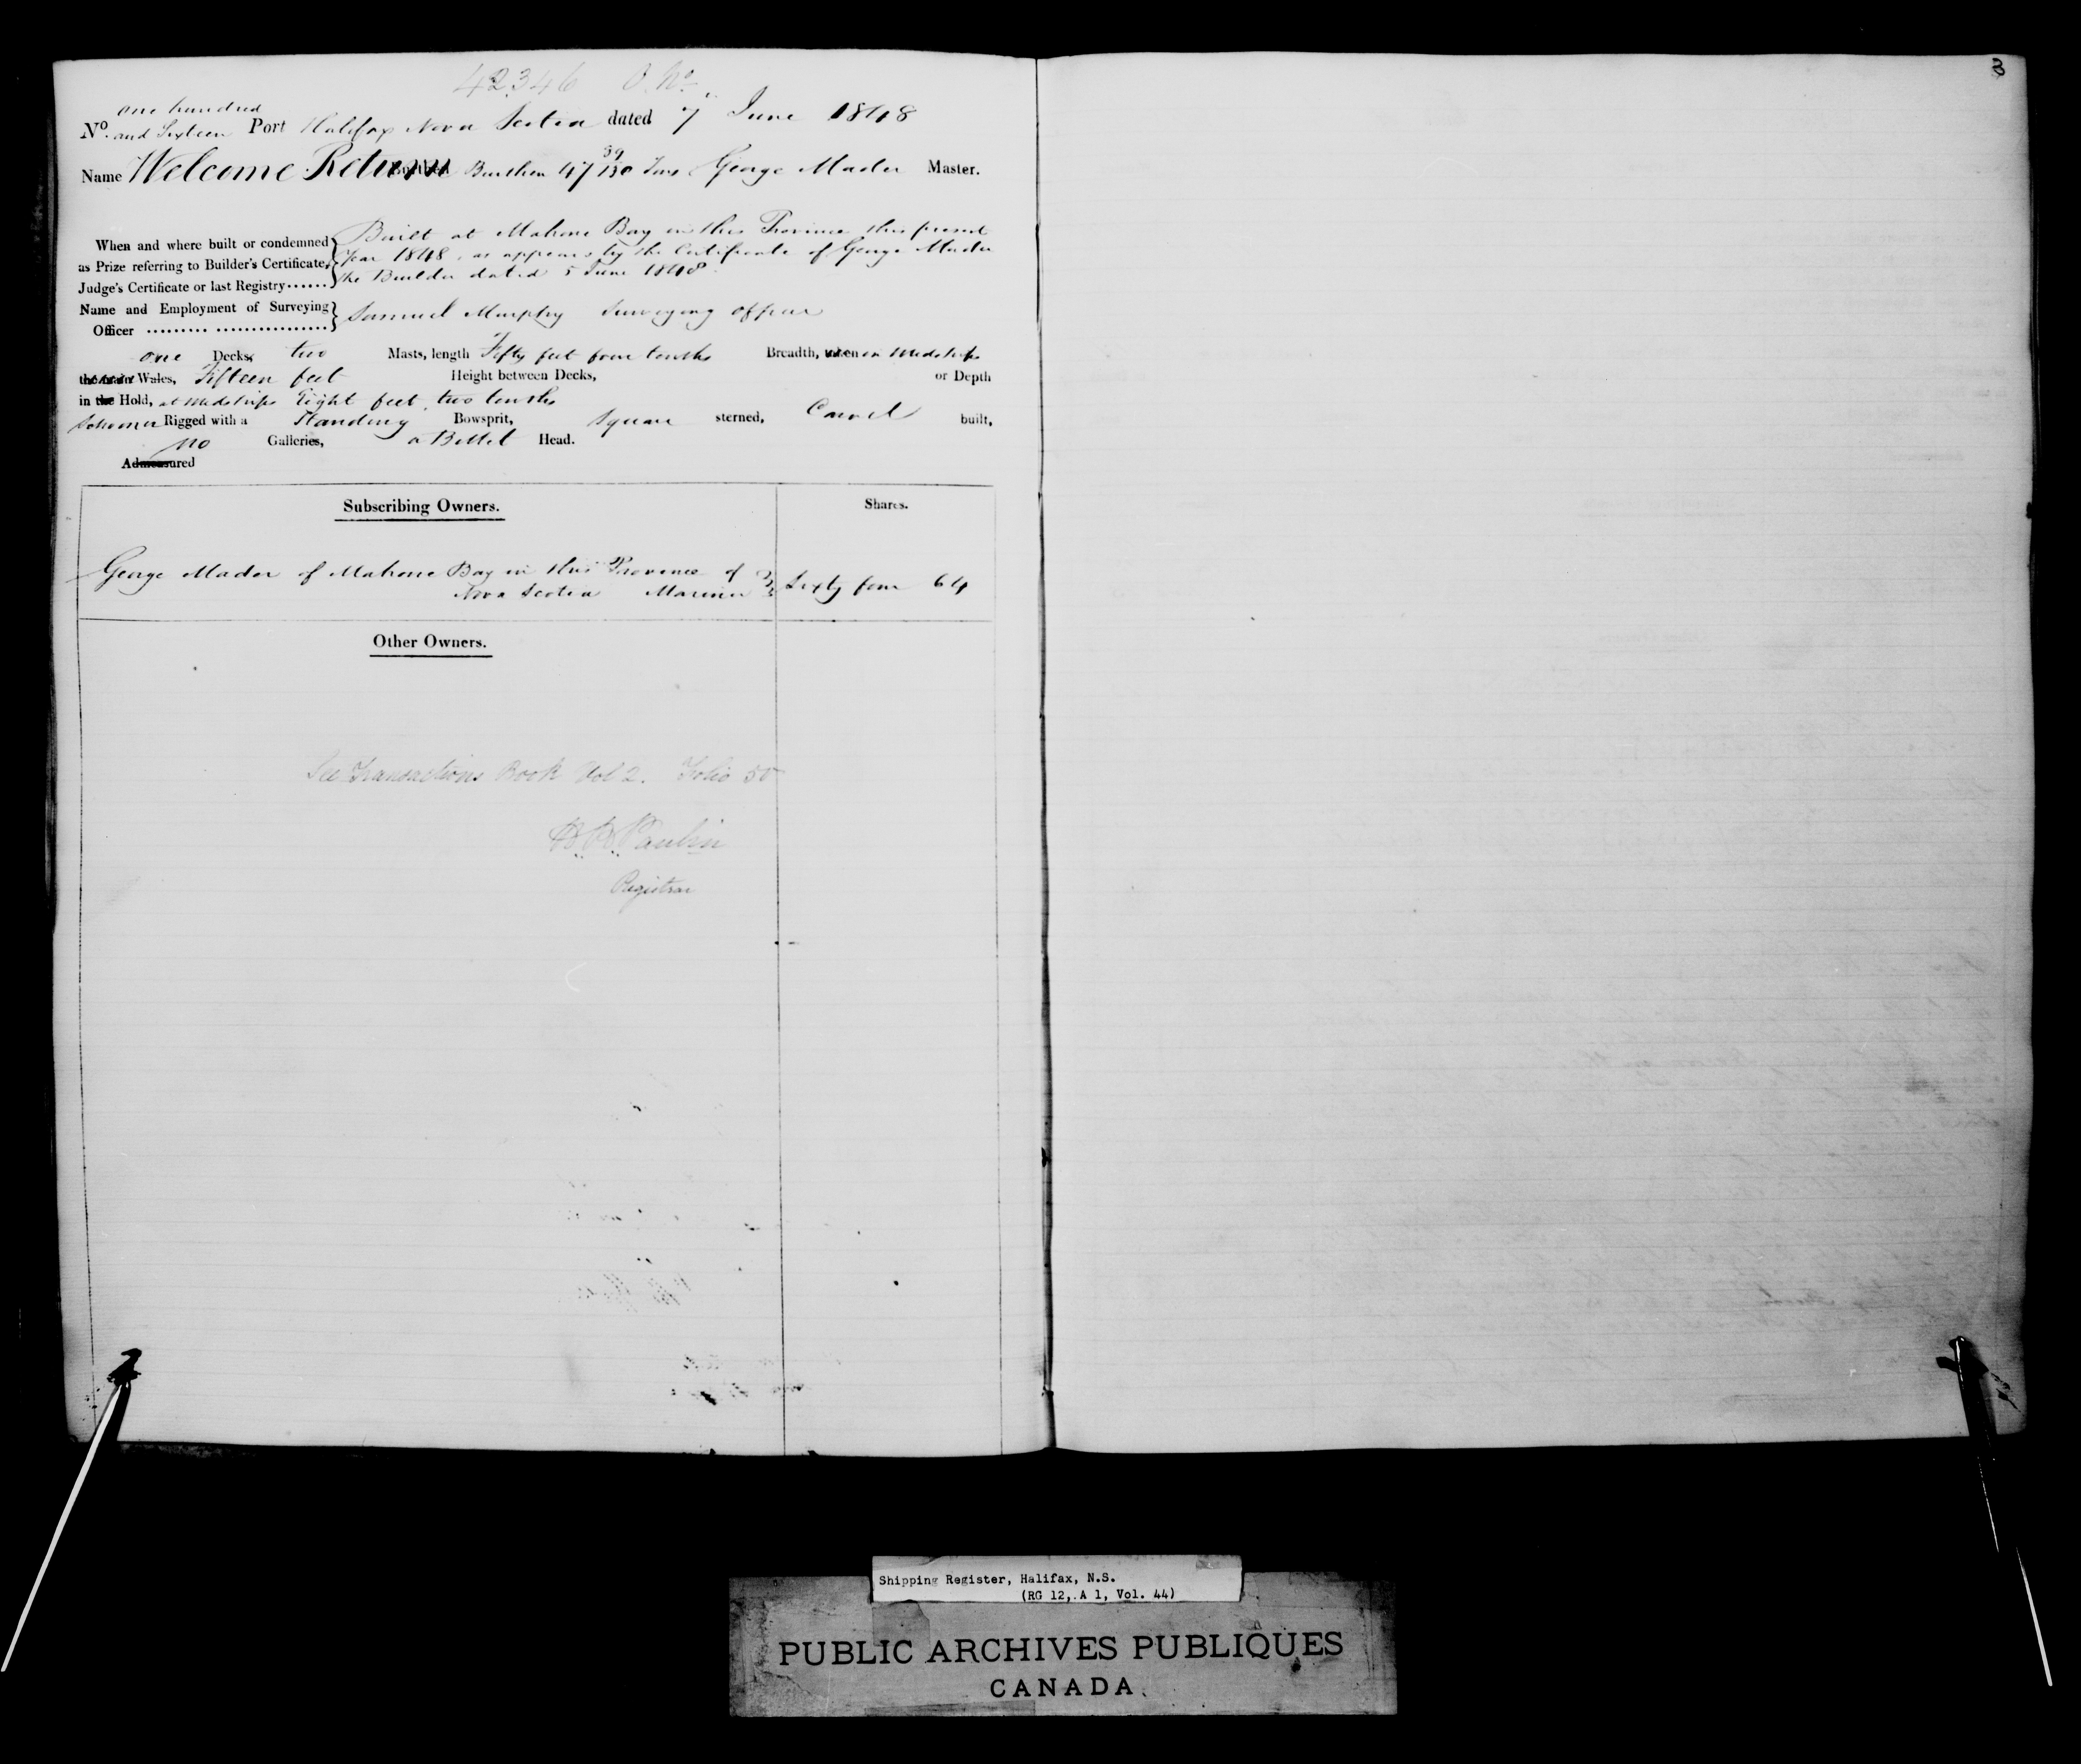 42346 O. No.
3
one hundred
No. and Sixteen Port Halifax Nova Scotia dated 7 June 1848
Name Welcome Return Burthen 47 39/130 Tons George Mader Master.
When and where built or condemned as Prize referring to Builder's Certificate, Judge's Certificate or last Registry......
Built at Mahone Bay in this Province this present
Year 1848, as appears by the Certificate of George Mader
the Builder dated 5 June 1848
Name and Employment of Surveying Officer ......... ................
Samuel Murphy Surveying officer
one Decks, two Masts, length Fifty feet four tenths Breadth, taken at Midships
the main Wales, Fifteen feet Height between Decks, or Depth
in the Hold, at Midships Eight feet two tenths
Schooner Rigged with a Standing Bowsprit, Square sterned, Carvel built,
no Galleries, a Billet Head.
Admeasured
Subscribing Owners. Shares.
George Mader of Mahone Bay in this Province of
Nova Scotia Mariner Sixty four 64
Other Owners.
See Transactions Book Vol 2. Folio 50
Registrar
Shipping Register, Halifax, N.S.
(RG 12, A 1, Vol. 44)
PUBLIC ARCHIVES PUBLIQUES
CANADA